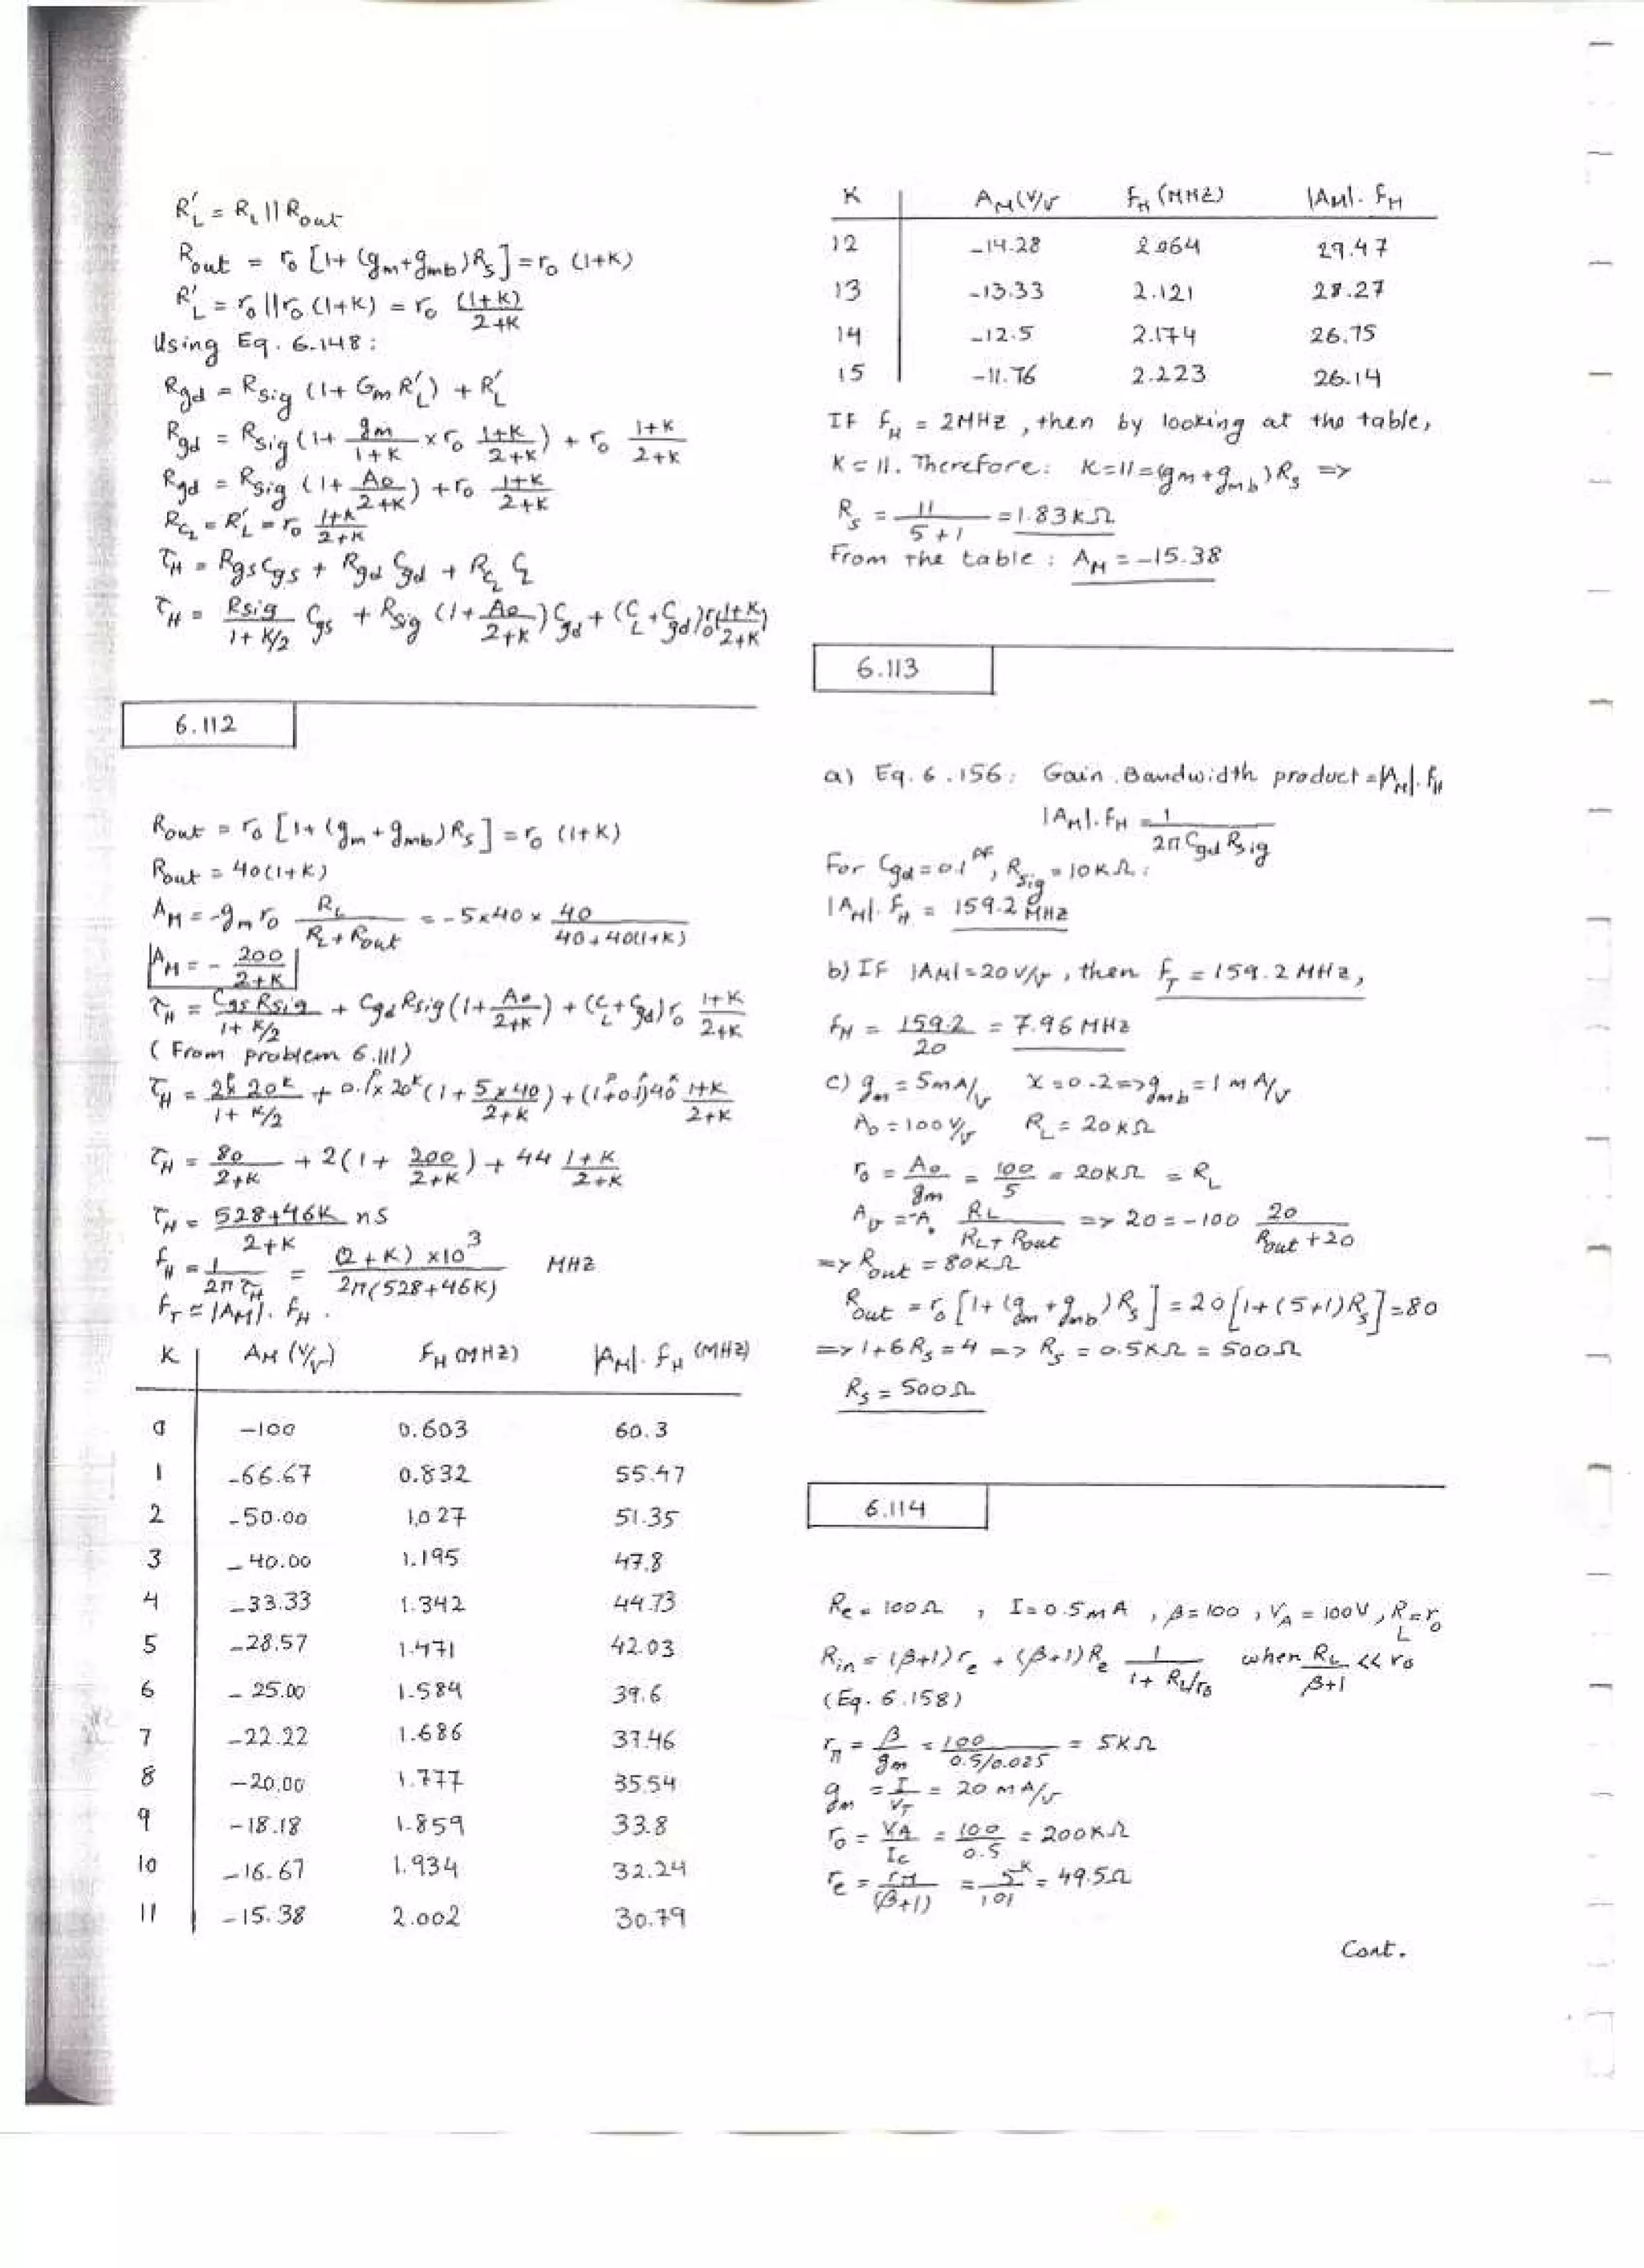 R'L = RL || Rout
Rout = ro [1+ (gm+gmb)Rs] = ro (1+K)
R'L = ro || ro (1+K) = ro (1+K)/(2+K)
Using Eq. 6.148 :
Rgd = Rsig (1+ Gm R'L) + R'L
Rgd = Rsig (1+ gm/(1+K) × ro (1+K)/(2+K)) + ro (1+K)/(2+K)
Rgd = Rsig (1+ Ao/(2+K)) + ro (1+K)/(2+K)
RCL = R'L = ro (1+K)/(2+K)
τH = Rgs Cgs + Rgd Cgd + RCL CL
τH = Rsig/(1+K/2) Cgs + Rsig (1+ Ao/(2+K)) Cgd + (CL+Cgd) ro (1+K)/(2+K)
6.112
Rout = ro [1+ (gm+gmb)Rs] = ro (1+K)
Rout = 40(1+K)
AM = -gm ro RL/(RL+Rout) = -5×40 × 40/(40+40(1+K))
AM = - 200/(2+K)
τH = Cgs Rsig/(1+K/2) + Cgd Rsig (1+ Ao/(2+K)) + (CL+Cgd) ro (1+K)/(2+K)
( From problem 6.111)
τH = 2p × 20k/(1+K/2) + 0.1p × 20k (1+ 5×40/(2+K)) + (1p+0.1p)40k (1+K)/(2+K)
τH = 80/(2+K) + 2(1+ 200/(2+K)) + 44 (1+K)/(2+K)
τH = (528+46K)/(2+K) nS
fH = 1/(2π τH) = (2+K) ×10^3/(2π(528+46K)) MHz
fT ≃ |AM|. fH .
K AM (V/V) fH (MHz) |AM|. fH (MHz)
0 -100 0.603 60.3
1 -66.67 0.832 55.47
2 -50.00 1.027 51.35
3 -40.00 1.195 47.8
4 -33.33 1.342 44.73
5 -28.57 1.471 42.03
6 -25.00 1.584 39.6
7 -22.22 1.686 37.46
8 -20.00 1.777 35.54
9 -18.18 1.859 33.8
10 -16.67 1.934 32.24
11 -15.38 2.002 30.79
K AM (V/V fH (MHz) |AM|. fH
12 -14.28 2.064 29.47
13 -13.33 2.121 28.27
14 -12.5 2.174 26.75
15 -11.76 2.223 26.14
IF fH = 2MHz , then by looking at the table,
K = 11. Therefore : K=11=(gm+gmb)Rs =>
Rs = 11/(5+1) = 1.83kΩ
From the table : AM = -15.38
6.113
a) Eq. 6.156 : Gain.Bandwidth product = |AM|. fH
|AM|. fH = 1/(2π Cgd Rsig)
For Cgd = 0.1 PF , Rsig = 10KΩ :
|AM|. fH = 159.2 MHz
b) IF |AM| = 20 V/V , then fT = 159.2 MHz ,
fH = 159.2/20 = 7.96 MHz
c) gm = 5mA/V X = 0.2 => gmb = 1 mA/V
Ao = 100 V/V RL = 20 KΩ
ro = Ao/gm = 100/5 = 20KΩ = RL
Av = -Ao RL/(RL+Rout) => 20 = -100 20/(Rout+20)
=> Rout = 80KΩ
Rout = ro [1+ (gm+gmb)Rs] = 20[1+(5+1)Rs] = 80
=> 1+6Rs = 4 => Rs = 0.5KΩ = 500Ω
Rs = 500Ω
6.114
Re = 100Ω , I = 0.5mA , β = 100 , VA = 100V , RL = ro
Rin = (β+1)re + (β+1)Re 1/(1+ RL/ro) when RL/(β+1) << ro
(Eq. 6.158)
rπ = β/gm = 100/(0.5/0.025) = 5KΩ
gm = I/VT = 20 mA/V
ro = VA/Ic = 100/0.5 = 200KΩ
re = rπ/(β+1) = 5K/101 = 49.5Ω
Cont.